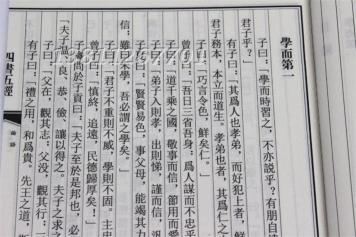 學而第一
子曰：「學而時習之，不亦説乎？有朋自遠
君子乎？」
有子曰：「其爲人也孝弟，而好犯上者，鮮
君子務本，本立而道生。孝弟也者，其爲仁之
子曰：「巧言令色，鮮矣仁。」
曾子曰：「吾日三省吾身：爲人謀而不忠乎
子曰：「道千乘之國，敬事而信，節用而愛
子曰：「弟子入則孝，出則悌，謹而信，汎
子曰：「賢賢易色，事父母，能竭其力
信；雖曰未學，吾必謂之學矣。」
子曰：「君子不重則不威，學則不固。主忠
曾子曰：「慎終，追遠，民德歸厚矣！」
子禽問於子貢曰：「夫子至於是邦也，必
「夫子溫、良、恭、儉、讓以得之。夫子之求之
子曰：「父在，觀其志；父没，觀其行；三
有子曰：「禮之用，和爲貴。先王之道，斯
四書五經
論語